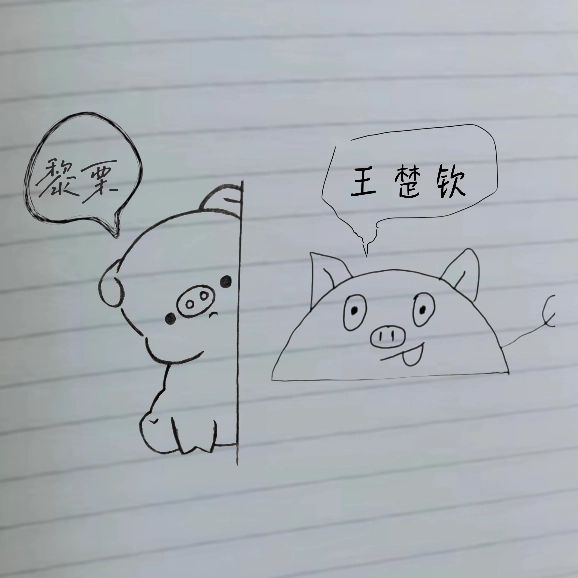 黎栗
王楚钦